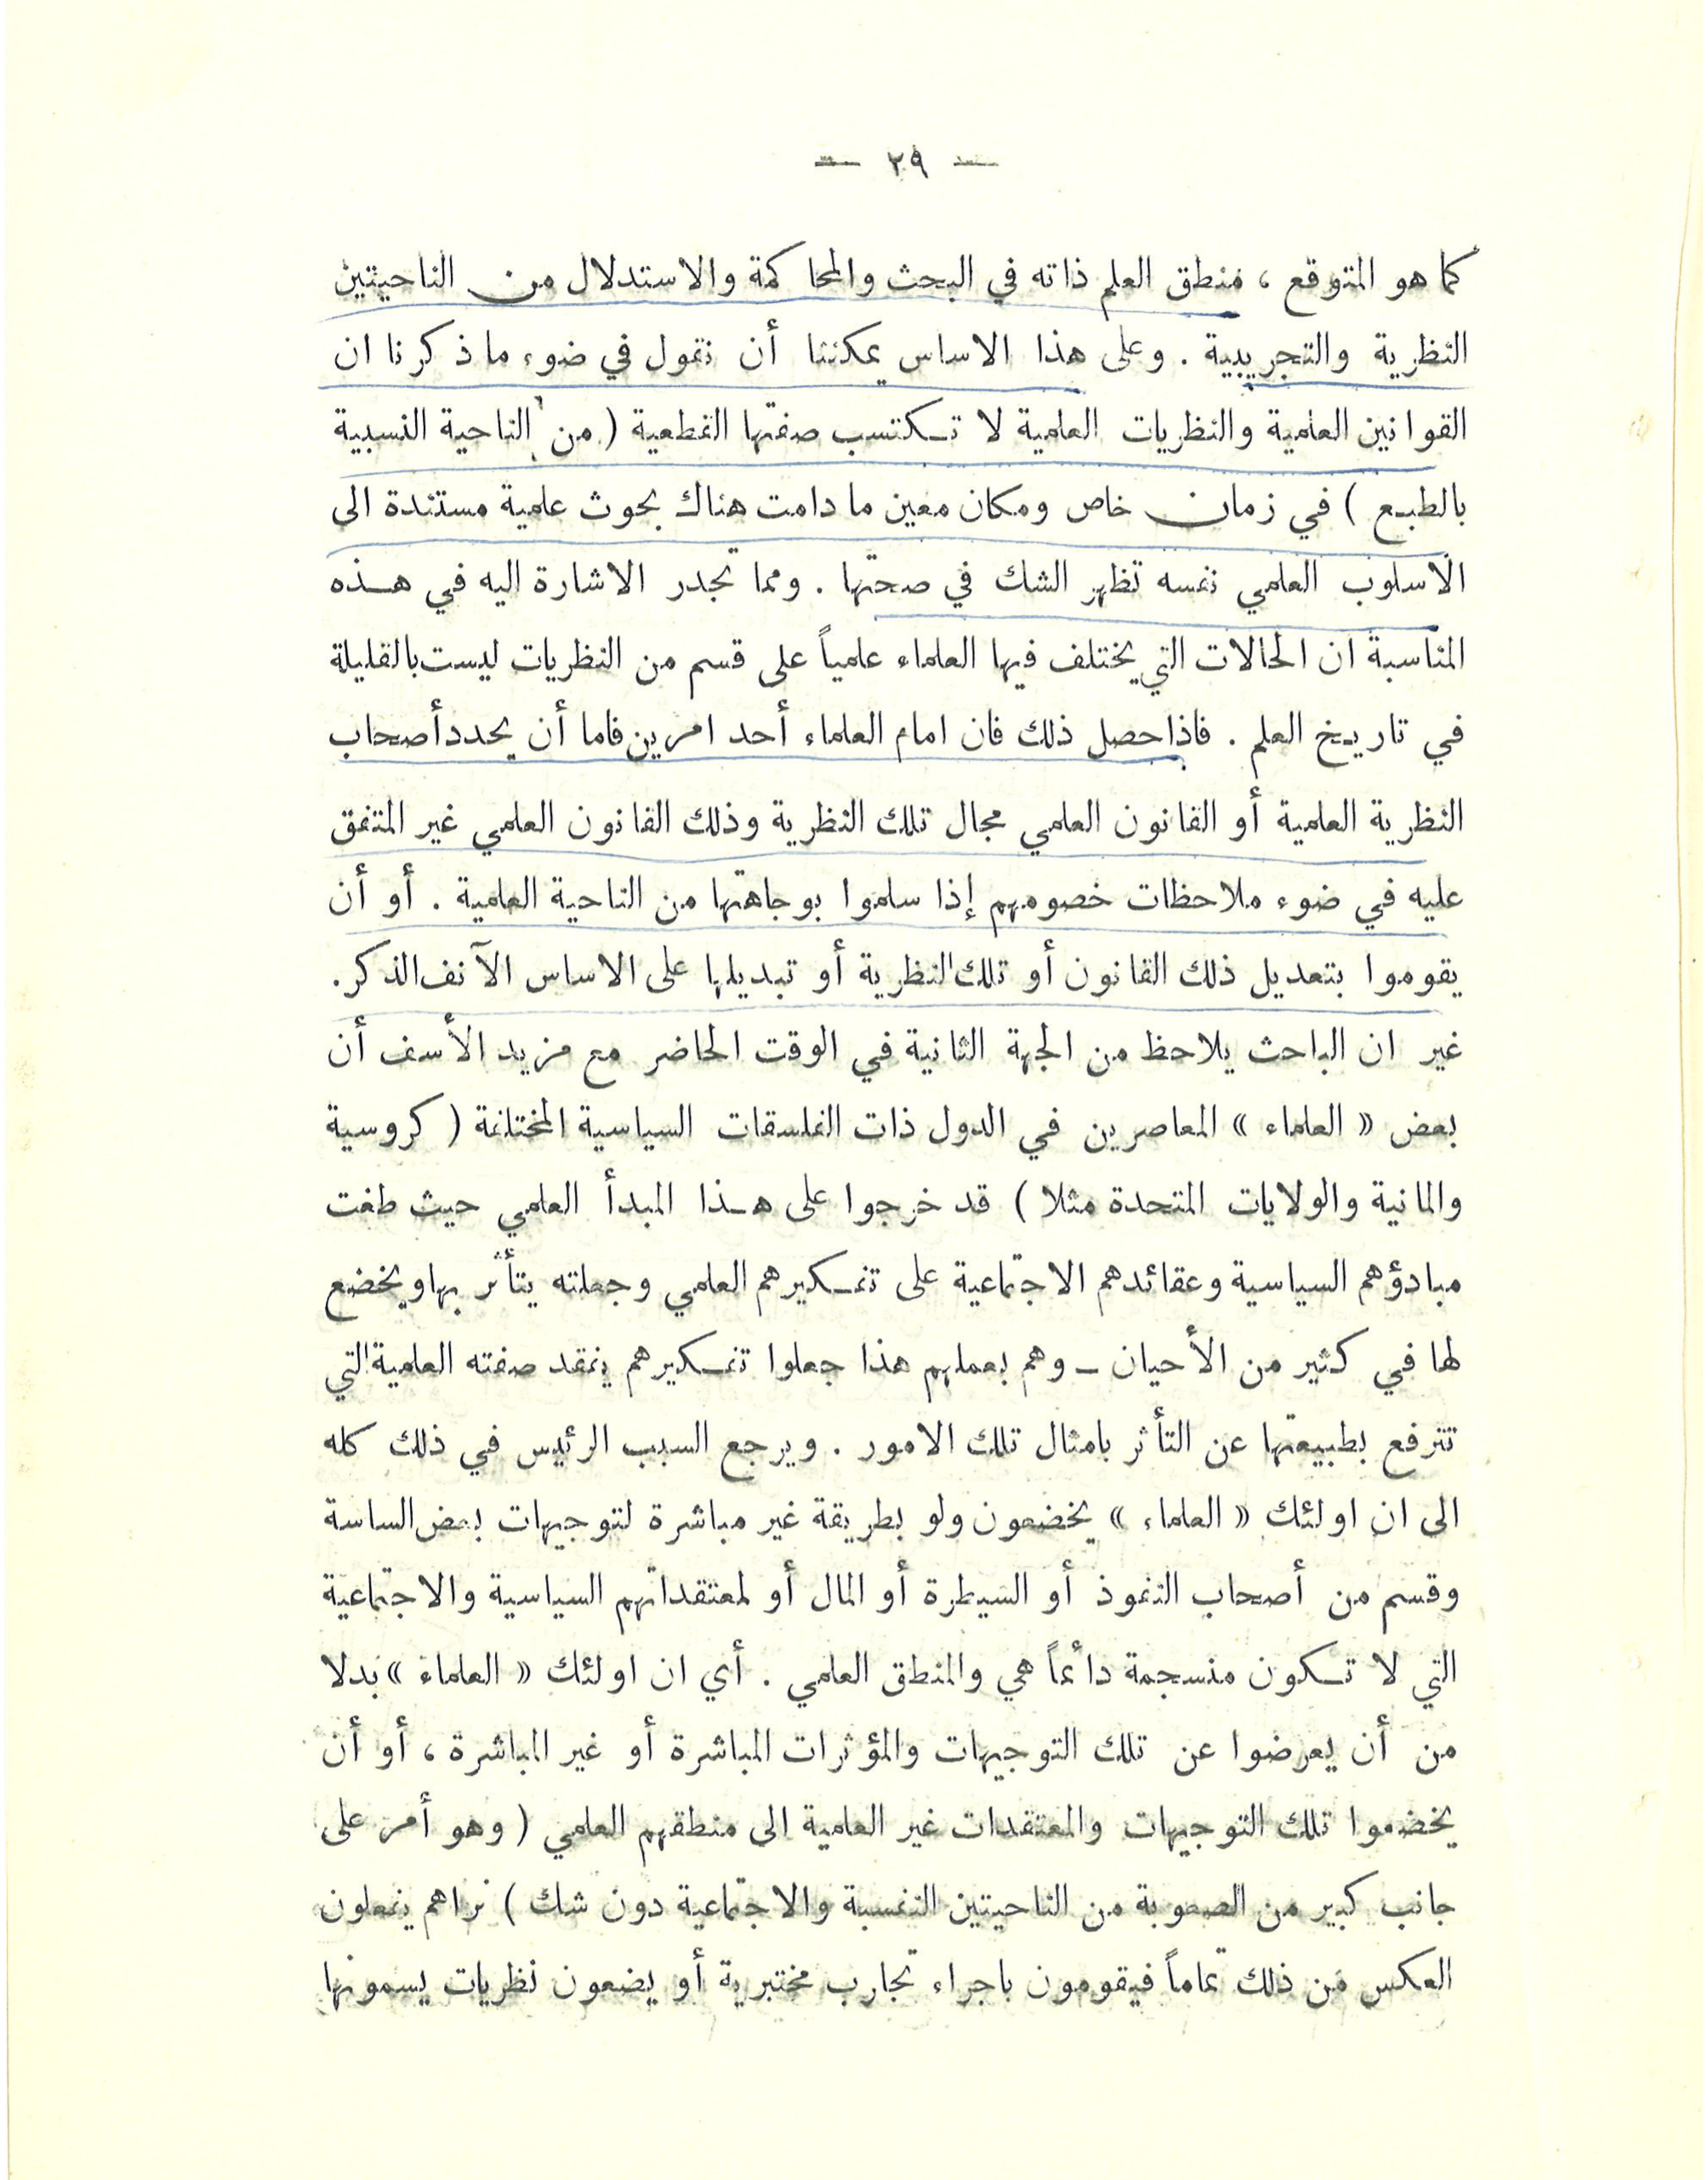 — ٢٩ —
كما هو المتوقع ، منطق العلم ذاته في البحث والمحاكمة والاستدلال من الناحيتين
النظرية والتجريبية . وعلى هذا الاساس يمكننا أن نقول في ضوء ما ذكرنا ان
القوانين العلمية والنظريات العلمية لا تكتسب صفتها القطعية ( من الناحية النسبية
بالطبع ) في زمان خاص ومكان معين ما دامت هناك بحوث علمية مستندة الى
الاسلوب العلمي نفسه تظهر الشك في صحتها . ومما تجدر الاشارة اليه في هذه
المناسبة ان الحالات التي يختلف فيها العلماء علمياً على قسم من النظريات ليست بالقليلة
في تاريخ العلم . فاذا حصل ذلك فان امام العلماء أحد امرين فاما أن يحدد أصحاب
النظرية العلمية أو القانون العلمي مجال تلك النظرية وذلك القانون العلمي غير المتفق
عليه في ضوء ملاحظات خصومهم إذا سلموا بوجاهتها من الناحية العلمية . أو أن
يقوموا بتعديل ذلك القانون أو تلك النظرية أو تبديلها على الاساس الآنف الذكر .
غير ان الباحث يلاحظ من الجهة الثانية في الوقت الحاضر مع مزيد الأسف أن
بعض « العلماء » المعاصرين في الدول ذات الفلسفات السياسية المختلفة ( كروسية
والمانية والولايات المتحدة مثلا ) قد خرجوا على هذا المبدأ العلمي حيث طغت
مبادؤهم السياسية وعقائدهم الاجتماعية على تفكيرهم العلمي وجعلته يتأثر بها ويخضع
لها في كثير من الأحيان – وهم بعملهم هذا جعلوا تفكيرهم يفقد صفته العلمية التي
تترفع بطبيعتها عن التأثر بامثال تلك الامور . ويرجع السبب الرئيس في ذلك كله
الى ان اولئك « العلماء » يخضعون ولو بطريقة غير مباشرة لتوجيهات بعض الساسة
وقسم من أصحاب النفوذ أو السيطرة أو المال أو لمعتقداتهم السياسية والاجتماعية
التي لا تكون منسجمة دائماً هي والمنطق العلمي . أي ان اولئك « العلماء » بدلا
من أن يعرضوا عن تلك التوجيهات والمؤثرات المباشرة أو غير المباشرة ، أو أن
يخضعوا تلك التوجيهات والمعتقدات غير العلمية الى منطقهم العلمي ( وهو أمر على
جانب كبير من الصعوبة من الناحيتين النفسية والاجتماعية دون شك ) نراهم يفعلون
العكس من ذلك تماماً فيقومون باجراء تجارب مختبرية أو يضعون نظريات يسمونها